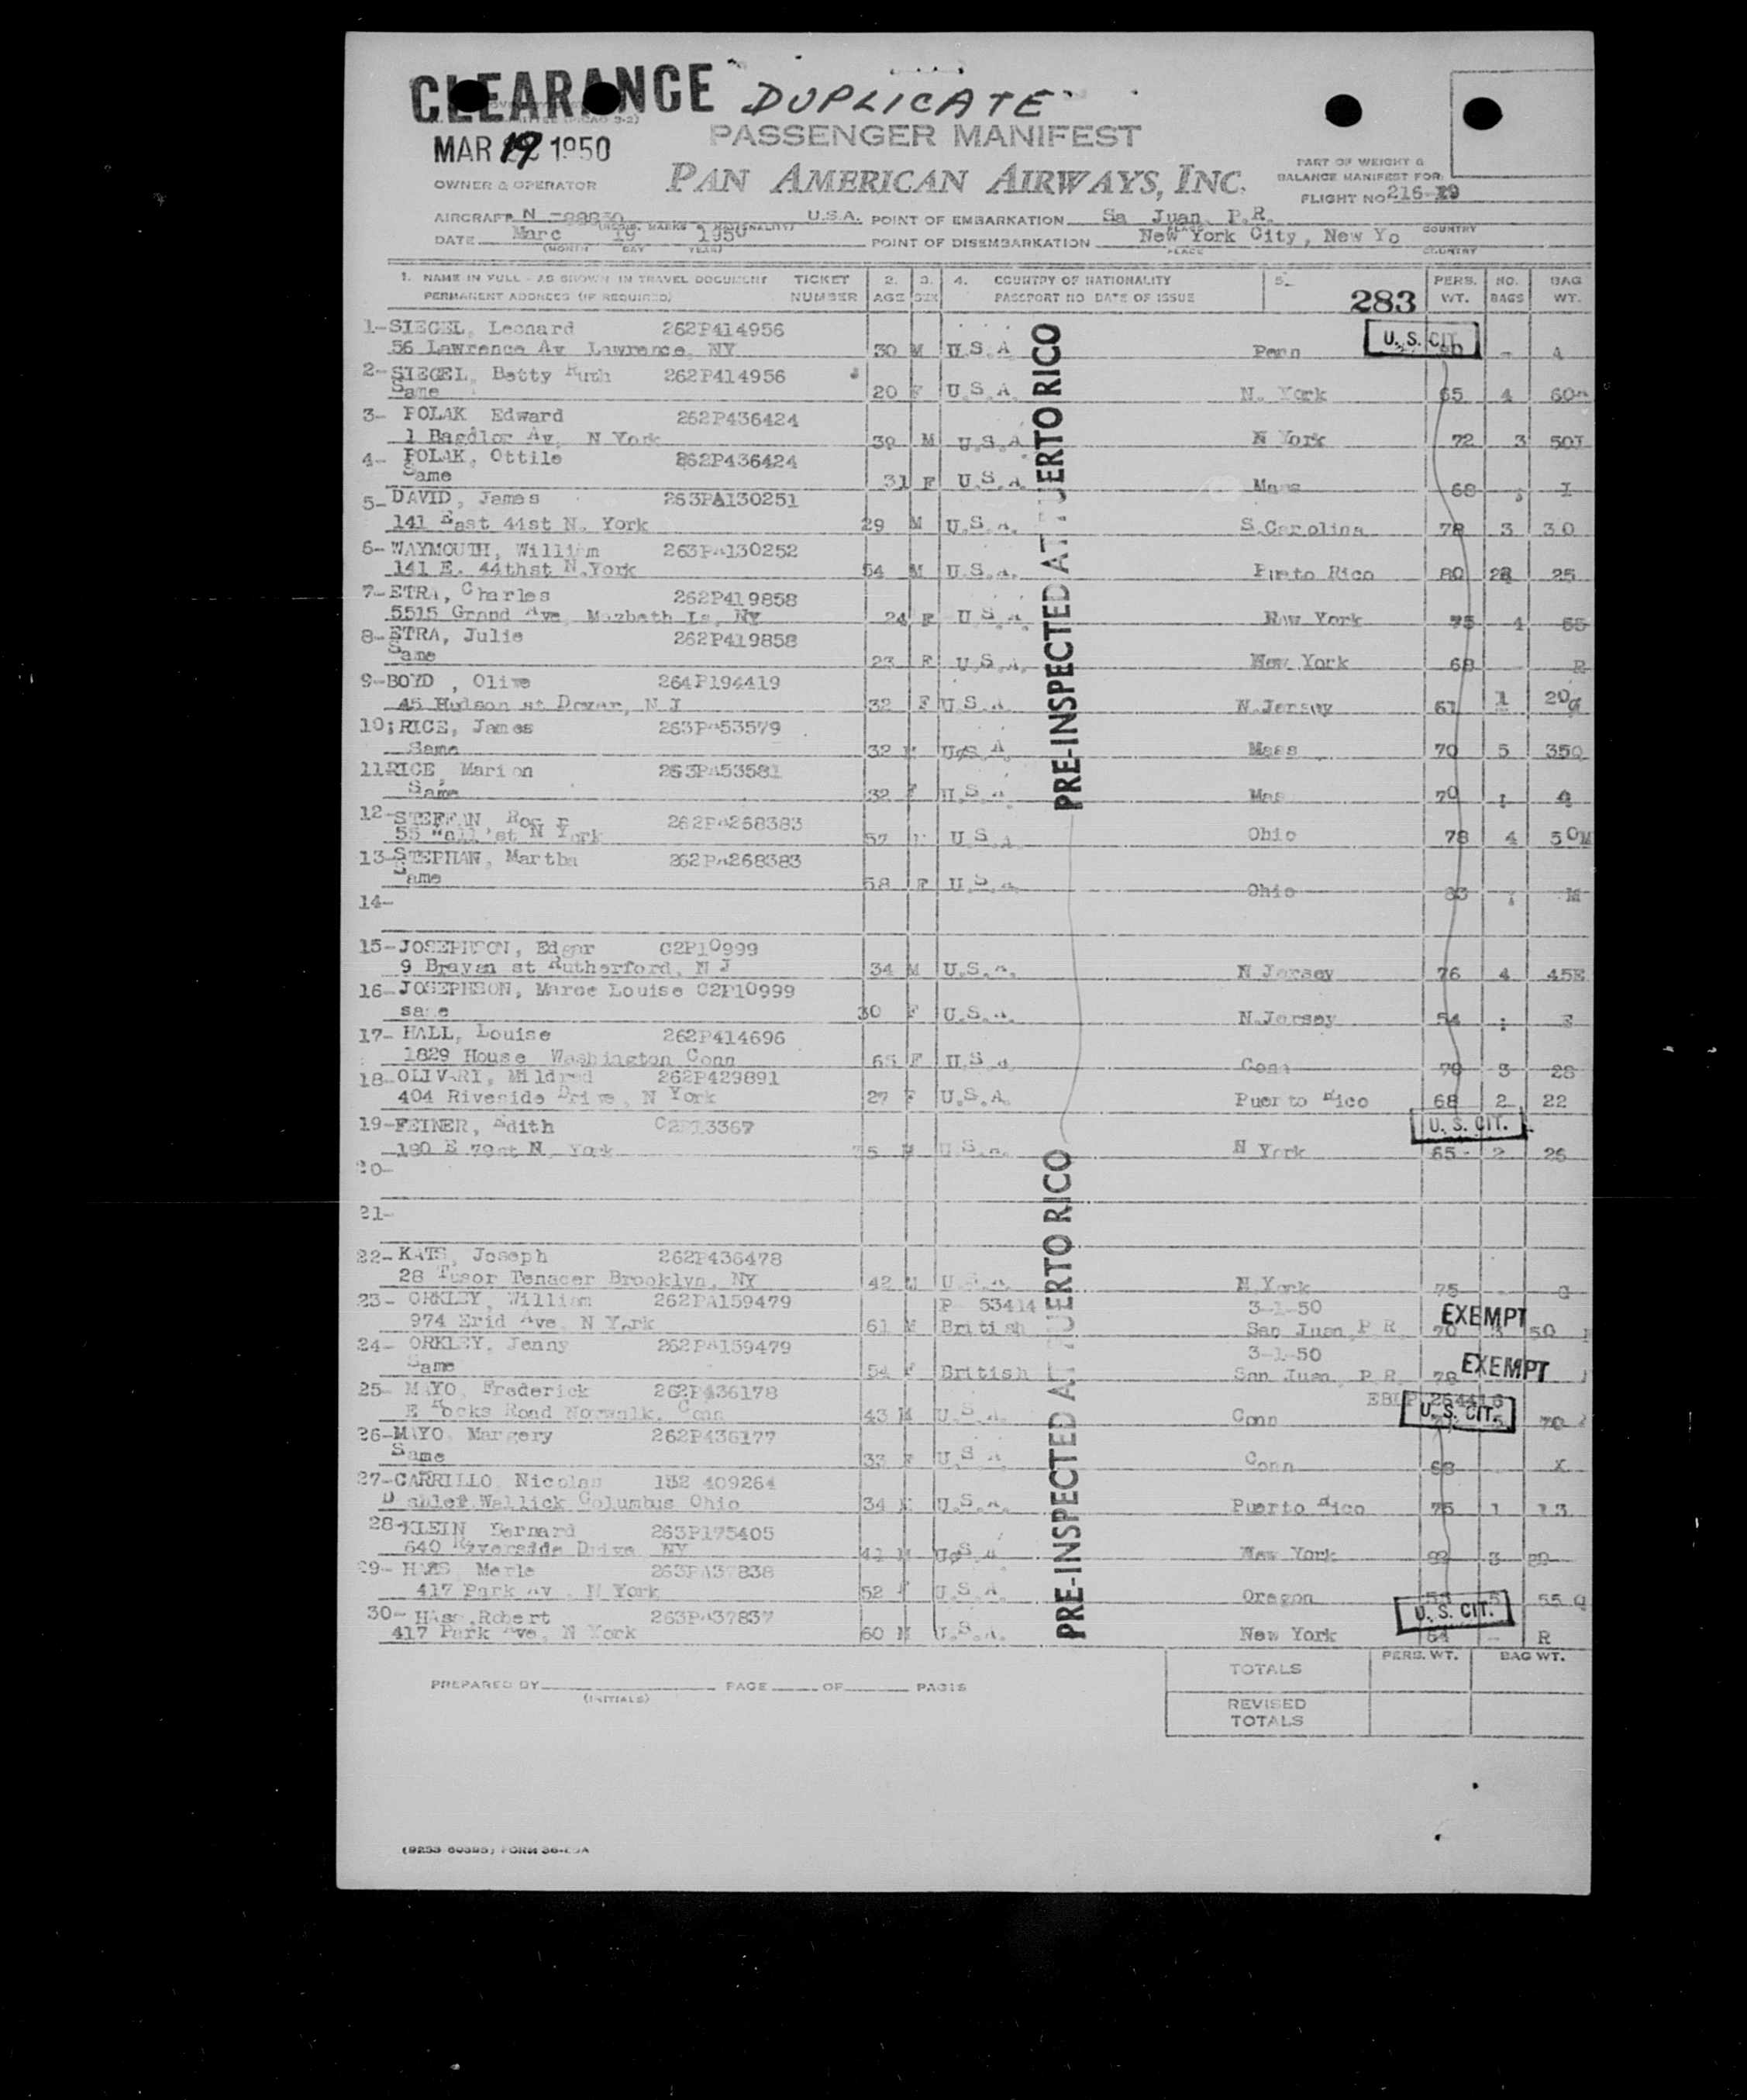 CLEARANCE DUPLICATE
MAR 19 1950
PASSENGER MANIFEST
PAN AMERICAN AIRWAYS, INC.
PART OF WEIGHT &
BALANCE MANIFEST FOR
OWNER & OPERATOR
FLIGHT NO 216-19
AIRCRAFT N U.S.A. POINT OF EMBARKATION Sa Juan P.R.
DATE Marc 19 1950 POINT OF DISEMBARKATION New York City, New Yo
COUNTRY
(MONTH DAY YEAR) PLACE COUNTRY
1. NAME IN FULL - AS SHOWN IN TRAVEL DOCUMENT TICKET 2. 3. 4. COUNTRY OF NATIONALITY 5. PERS. NO. BAG
PERMANENT ADDRESS (IF REQUIRED) NUMBER AGE SEX PASSPORT NO DATE OF ISSUE 283 WT. BAGS WT.
1-SIEGEL, Leonard 262P414956 U.S. CIT.
56 Lawrence Av Lawrence, NY 30 M U.S.A Penn - A
2-SIEGEL, Betty Ruth 262P414956
Same 20 F U.S.A. N. York 65 4 60
3- POLAK Edward 262P436424
N York 39 M U.S.A N York 72 3 50I
4- POLAK, Ottile 262P436424
Same 31 F U.S.A. Mass 68 ; I
5-DAVID, James 263PA130251
141 East 44st N. York 29 M U.S.A. S.Carolina 78 3 30
6-WAYMOUTH, William 263PA130252
141 E. 44thst N.York 54 M U.S.A. Pueto Rico 80 25
7-ETRA, Charles 262P419858
5515 Grand Ave Mazbeth Is, NY 24 F U.S.A. New York 75 4 65
8-ETRA, Julie 262P419858
Same 23 F U.S.A. New York 68 R
9-BOYD , Olive 264P194419
45 Hudson st Dover, N J 32 F U.S.A. N.Jersey 61 1 20
10;RICE, James 263PA53579
Same 32 M U.S.A Mass 70 5 35Q
11RICE, Marion 263PA53581
Same 32 F U.S.A Mas 70 ; Q
12-STEFFAN, 262PA268383
55 Wall st N York 57 U.S.A Ohio 78 4 50M
13-STEPHAN, Martha 262PA268383
Same 58 F U.S.A. Ohio ; M
14-
15-JOSEPHSON, Edgar C2P10999
9 Brayan st Rutherford, N J 34 M U.S.A. N Jersey 76 4 45E
16-JOSEPHSON, Maroe Louise C2P10999
same 30 F U.S.A. N.Jersey 54 ; E
17- HALL, Louise 262P414696
1829 House Washington Conn 65 F U.S.A Conn 70 3 28
18-OLIVARI, Mildred 262P429891
404 Riveside Drive, N York 27 F U.S.A. Puerto Rico 68 2 22
19-FEINER, Edith C2P13367 U. S. CIT.
190 E 79st N. York U.S.A. N York 65 2 26
20-
21-
22- KATS, Joseph 262P436478
28 Tusor Tenacer Brooklyn, NY 42 M U.S.A. N.York 75 - G
23- ORKLEY, William 262PA159479 P 53414 3-1-50 EXEMPT
974 Erid Ave N York 61 M British San Juan, P R. 70 50
24- ORKLEY, Jenny 262PA159479 3-1-50 EXEMPT
Same 54 F British San Juan, P R. 78
25- MAYO, Frederick 262P436178 U. S. CIT.
E Rocks Road Norwalk, Conn 43 M U.S.A. Conn 70
26-MAYO, Margery 262P436177
Same 33 F U.S.A Conn 68
27-CARRILLO, Nicolas 132 409264
Wallick Columbus Ohio 34 M U.S.A. Puerto Rico 75 1 13
28-KLEIN Bernard 263P175405
640 Riverside Drive NY 41 M U.S.A New York 3
29- HAAS, Merle 263PA37838
417 Park Av , N York 52 F U.S.A. Oregon 5 55 Q
30- HAas,Robert 263PA37837 U. S. CIT.
417 Park Ave, N York 60 M U.S.A. New York 64 - R
PRE-INSPECTED AT PUERTO RICO
PRE-INSPECTED AT PUERTO RICO
TOTALS PERS. WT. BAG WT.
PREPARED BY (INITIALS) PAGE OF PAGES
REVISED
TOTALS